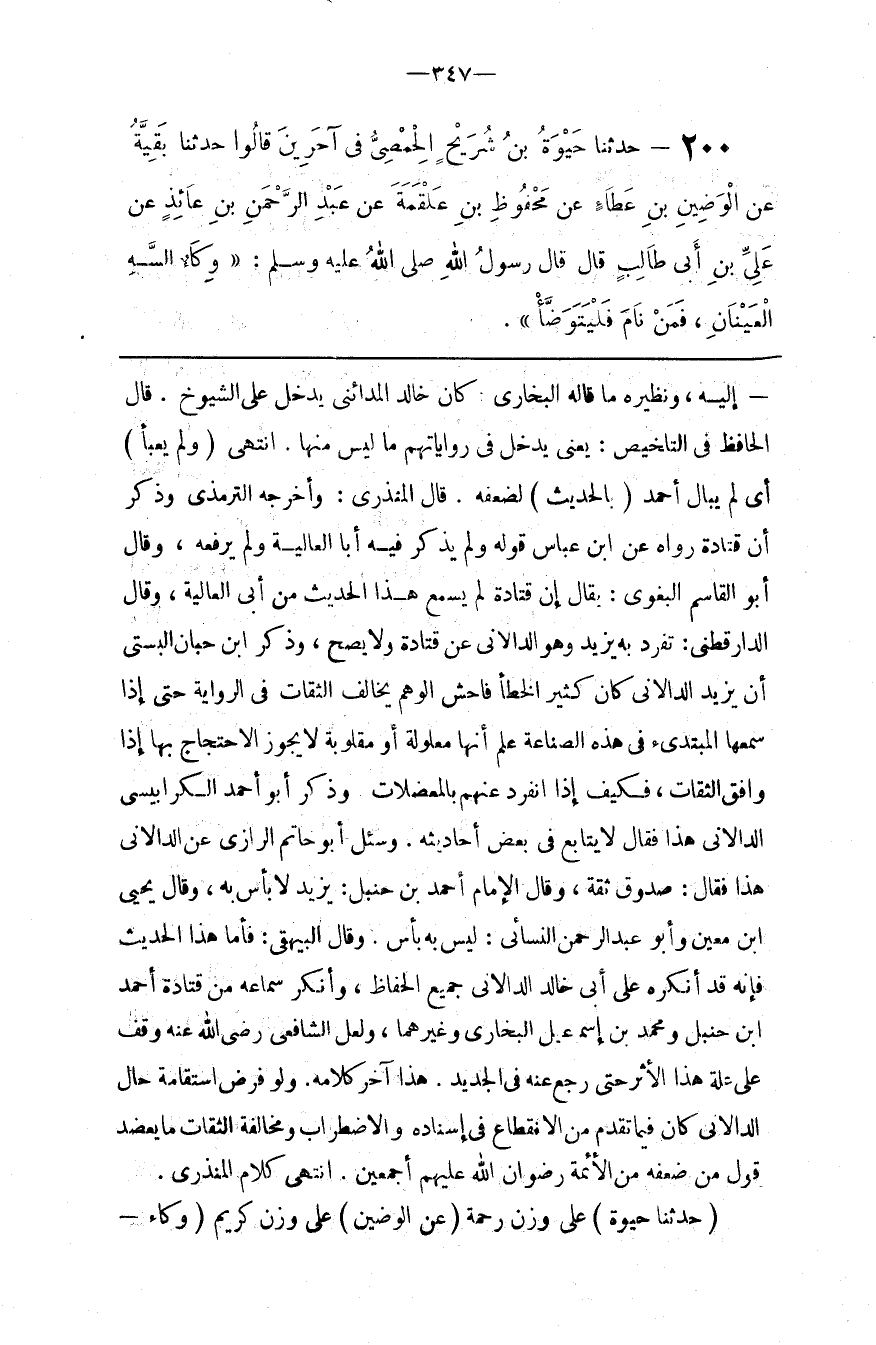 —٣٤٧—
٢٠٠ — حدثنا حَيْوَةُ بنُ شُرَيْحٍ الْحِمْصِىُّ فى آخَرِينَ قالُوا حدثنا بَقِيَّةُ
عَن الْوَضِينِ بنِ عَطَاءٍ عن مَحْفُوظِ بنِ عَلْقَمَةَ عن عَبْدِ الرَّحْمَنِ بنِ عَائِذٍ عن
عَلِىِّ بنِ أَبى طَالِبٍ قال قال رسولُ اللهِ صلى اللهُ عليه وسلم : « وِكَاءُ السَّهِ
الْعَيْنَانِ ، فَمَنْ نَامَ فَلْيَتَوَضَّأْ » .
— إليه ، ونظيره ما قاله البخارى : كان خالد المدائنى يدخل على الشيوخ . قال
الحافظ فى التلخيص : يعنى يدخل فى رواياتهم ما ليس منها . انتهى ( ولم يعبأ )
أى لم يبال أحمد ( بالحديث ) لضعفه . قال المنذرى : وأخرجه الترمذى وذكر
أن قتادة رواه عن ابن عباس قوله ولم يذكر فيه أبا العالية ولم يرفعه ، وقال
أبو القاسم البغوى : يقال إن قتادة لم يسمع هذا الحديث من أبى العالية ، وقال
الدارقطنى : تفرد به يزيد وهو الدالانى عن قتادة ولا يصح ، وذكر ابن حبان البستى
أن يزيد الدالانى كان كثير الخطأ فاحش الوهم يخالف الثقات فى الرواية حتى إذا
سمعها المبتدىء فى هذه الصناعة علم أنها معلولة أو مقلوبة لا يجوز الاحتجاج بها إذا
وافق الثقات ، فكيف إذا انفرد عنهم بالمعضلات وذكر أبو أحمد الكرابيسى
الدالانى هذا فقال لا يتابع فى بعض أحاديثه . وسئل أبو حاتم الرازى عن الدالانى
هذا فقال : صدوق ثقة ، وقال الإمام أحمد بن حنبل : يزيد لا بأس به ، وقال يحيى
ابن معين وأبو عبد الرحمن النسائى : ليس به بأس . وقال البيهقى : فأما هذا الحديث
فإنه قد أنكره على أبى خالد الدالانى جميع الحفاظ ، وأنكر سماعه من قتادة أحمد
ابن حنبل ومحمد بن إسمعيل البخارى وغيرهما ، ولعل الشافعى رضى الله عنه وقف
على علة هذا الأثر حتى رجع عنه فى الجديد . هذا آخر كلامه . ولو فرض استقامة حال
الدالانى كان فيما تقدم من الانقطاع فى إسناده والاضطراب ومخالفة الثقات ما يعضد
قول من ضعفه من الأئمة رضوان الله عليهم أجمعين . انتهى كلام المنذرى .
( حدثنا حيوة ) على وزن رحمة ( عن الوضين ) على وزن كريم ( وكاء —